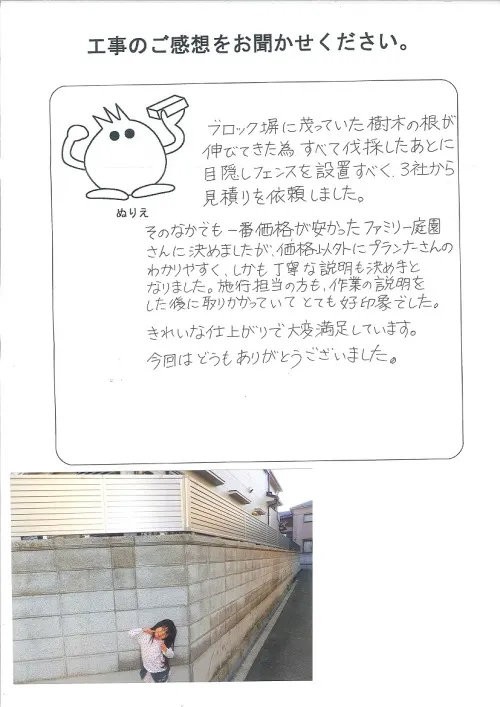 工事のご感想をお聞かせください。
ブロック塀に茂っていた樹木の根が
伸びてきた為、すべて伐採したあとに
目隠しフェンスを設置すべく、3社から
見積りを依頼しました。
ぬりえ
そのなかでも一番価格が安かったファミリー庭園
さんに決めましたが、価格以外にプランナーさんの
わかりやすく、しかも丁寧な説明も決め手と
なりました。施行担当の方も、作業の説明を
した後に取りかかっていてとても好印象でした。
きれいな仕上がりで大変満足しています。
今回はどうもありがとうございました。